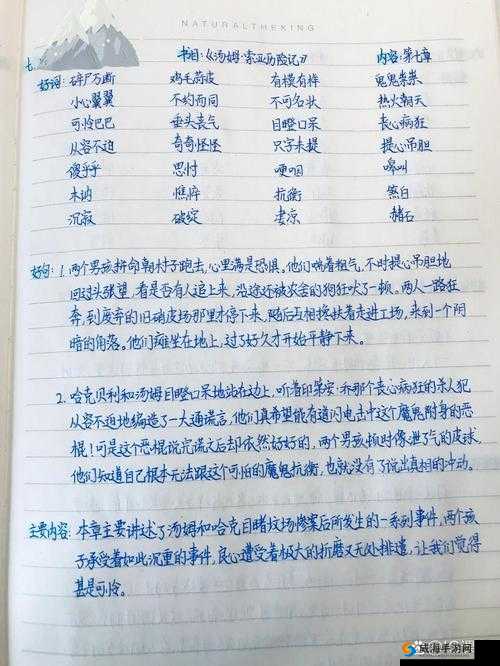 NATURALTHEKING
书目:《汤姆·索亚历险记》 内容:第七章
好词: 碎尸万断 鸡毛蒜皮 有模有样 鬼鬼祟祟
小心翼翼 不约而同 不可名状 热火朝天
可怜巴巴 垂头丧气 目瞪口呆 丧心病狂
从容不迫 奇奇怪怪 只字未提 提心吊胆
傻乎乎 思忖 哽咽 嗥叫
木讷 憔悴 抗衡 煞白
沉寂 破绽 凄凉 赭石
好句: 1.两个男孩拼命朝村子跑去,心里满是恐惧。他们喘着粗气,不时提心吊胆地
回过头张望,看是否有人追上来,沿途还被农舍的狗狂吠了一顿。两人一路狂
奔,到废弃的旧硝皮场那里才停下来,随后互相搀扶着走进工场,来到一个阴
暗的角落。他们瘫坐在地上,过了好久才开始平静下来。
2. 哈克贝利和汤姆目瞪口呆地站在边上,听着印第安·乔那个丧心病狂的杀人犯
从容不迫地编造了一大通谎言,他们真希望能有道闪电击中这个魔鬼附身的恶
棍!可是这个恶棍说完谎之后却依然好好的,两个男孩顿时像泄了气的皮球,
他们知道自己根本无法跟这个可怕的魔鬼抗衡,也就没有了说出真相的冲动。
主要内容: 本章主要讲述了汤姆和哈克目睹坟场惨案后所发生的一系列事件,两个孩
子承受着如此沉重的事件,良心遭受着极大的折磨又无处排遣,让我们觉得
甚是可怜。
威海手游网